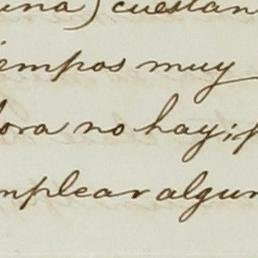 una) cuestan
iempos muy
ora no hay; p
mplear algun